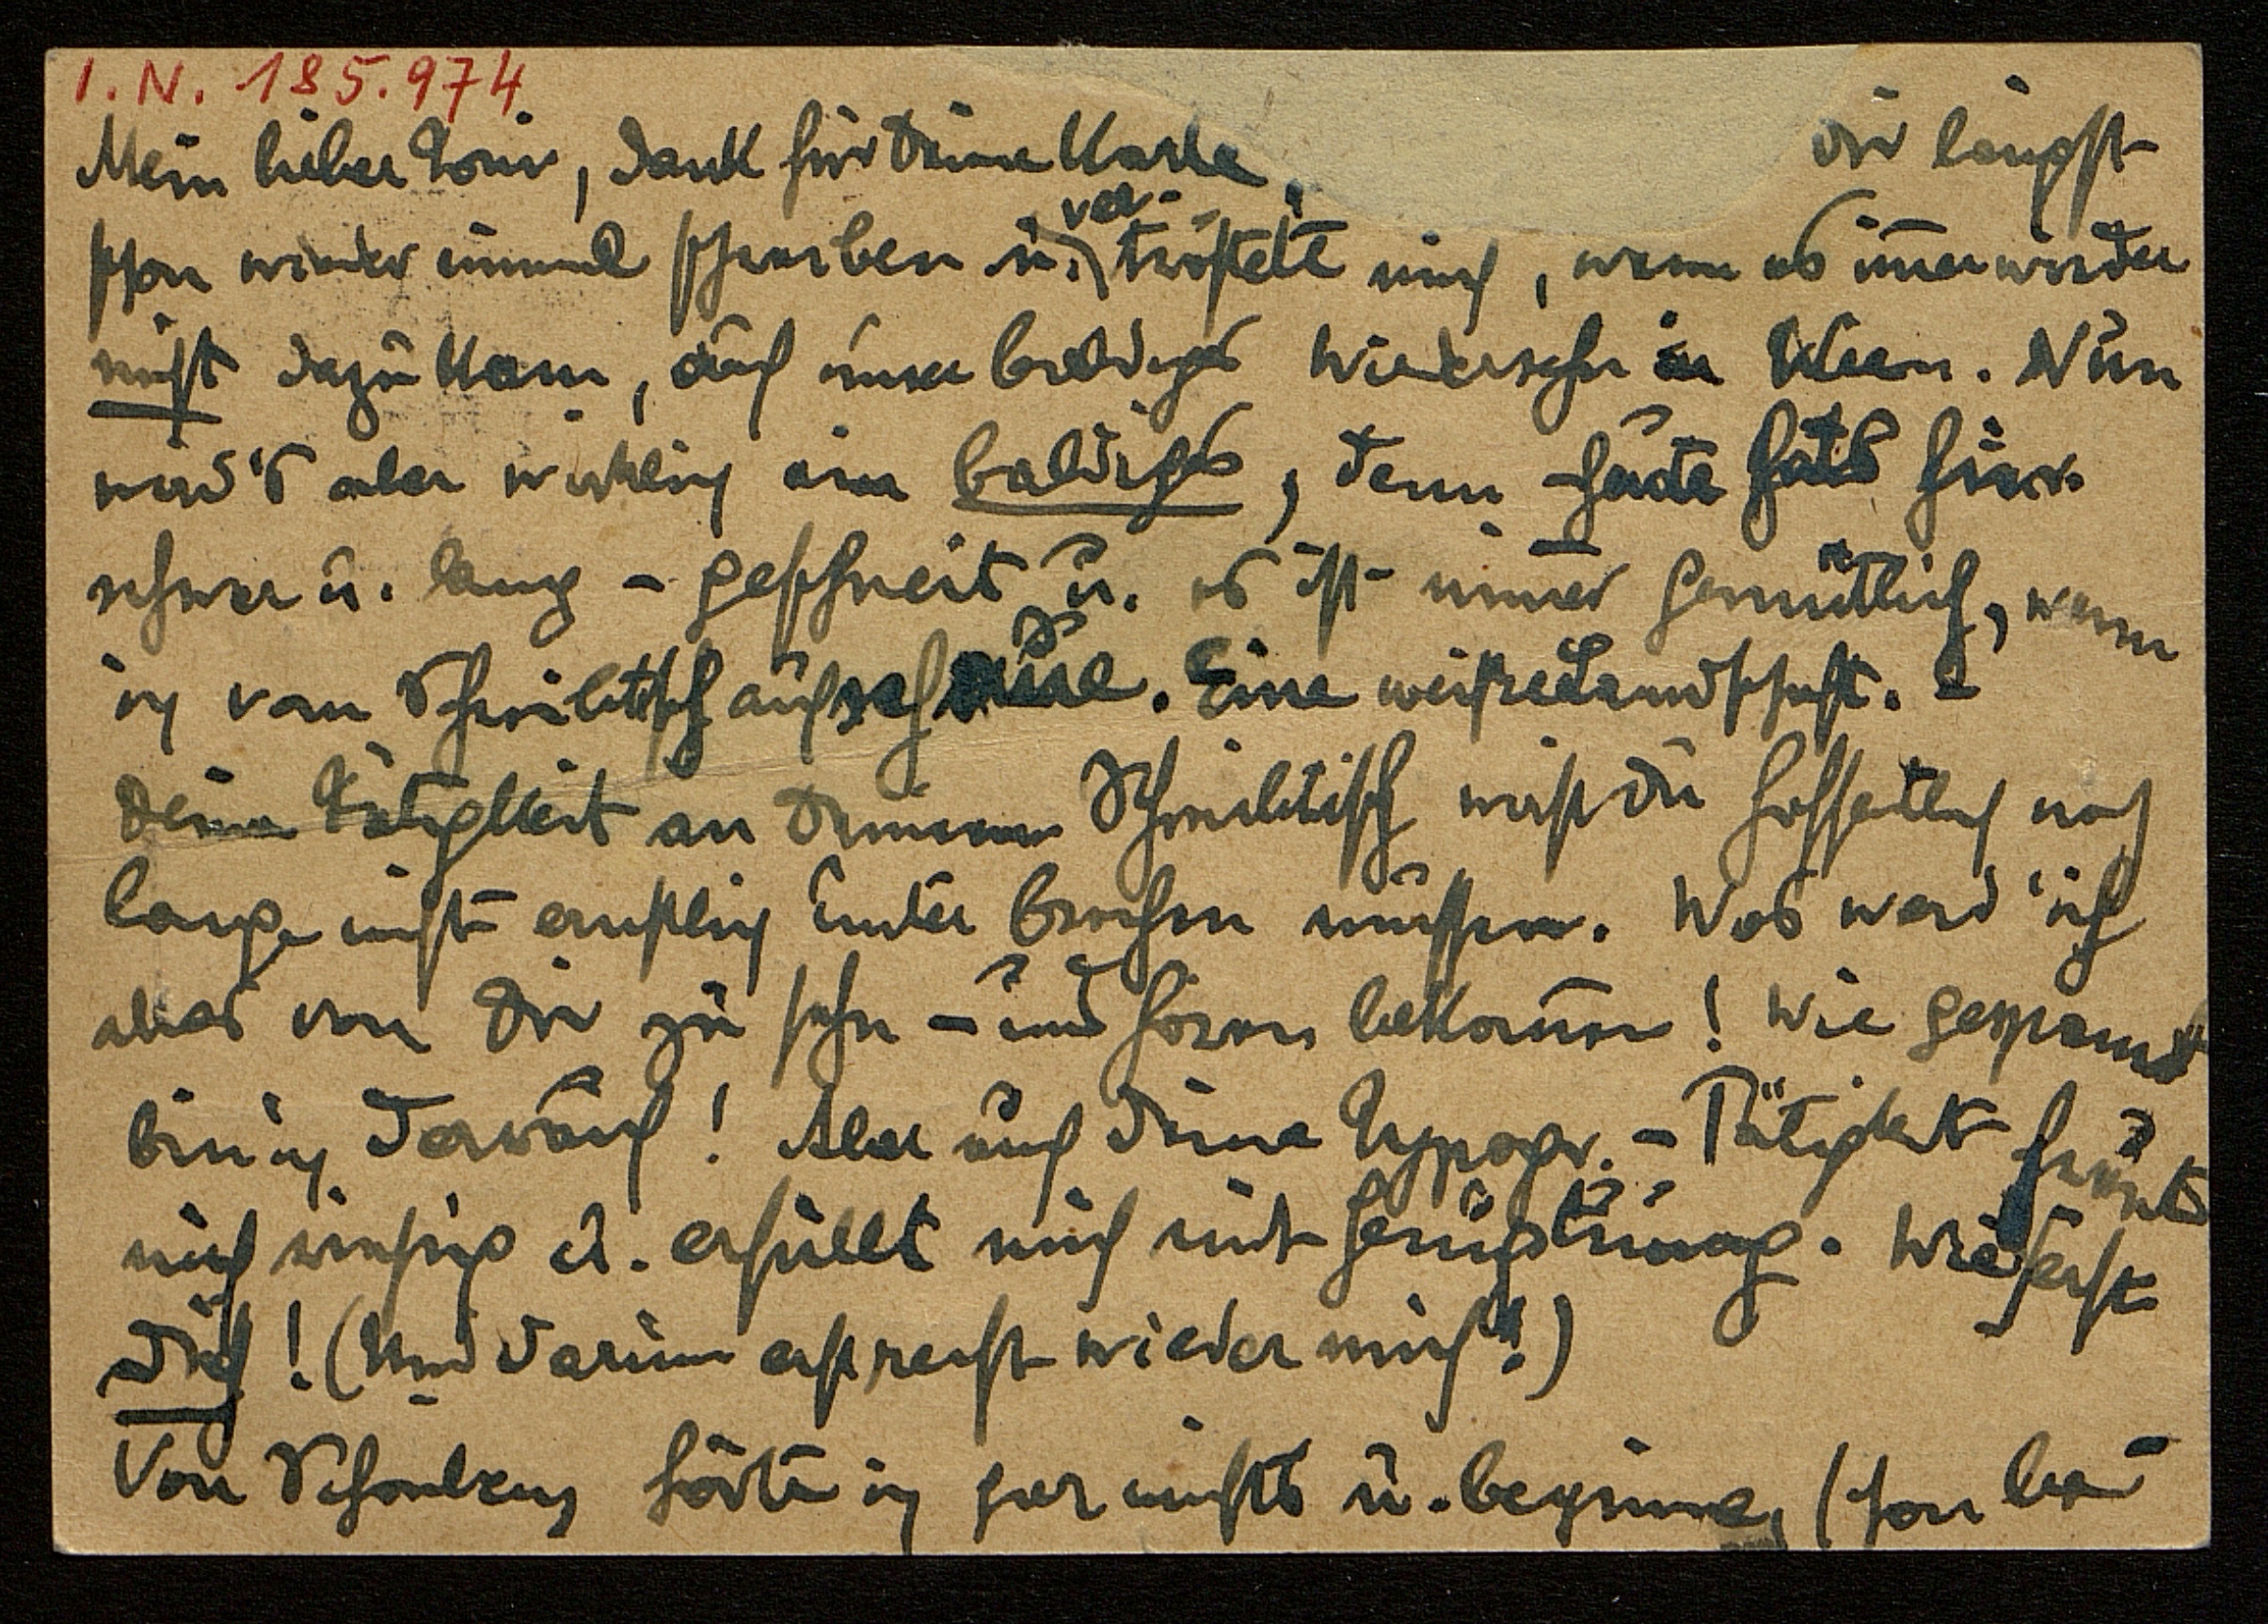 I. N. 185.974
Mein lieber Toni, Dank für Deine Karte, Dir längst
schon wieder einmal schreiben u. ver-tröstete mich, wenn es im̄er wieder
nicht dazu kam, auf unser baldiges Wiedersehn in Wien. Nun
wird's aber wirklich ein baldiges, denn heute hats hier
schwer u. lang - geschneit u. es ist immer gemütlich, wenn
ich vom Schreibtisch aufschaue. Eine weisse Landschaft. -
Deine Tätigkeit an Deinem Schreibtisch wirst Du hoffentlich noch
lange nicht ernstlich unterbrechen müssen. Was werd' ich
alles von Dir zu sehn - und hören bekom̄en! Wie gespannt
bin ich darauf! Aber auch Deine Typogr. - Tätigkeit freut
mich riesig u. erfüllt mich mit Genugtuung. Wie erst
Dich! (Und darum erst recht wieder mich!)
Von hörte ich gar nichts u. beginne, schon